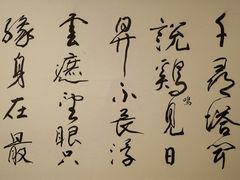 千尋塔聞
說鷄鳴見日
昇不畏浮
雲遮望眼只
緣身在最